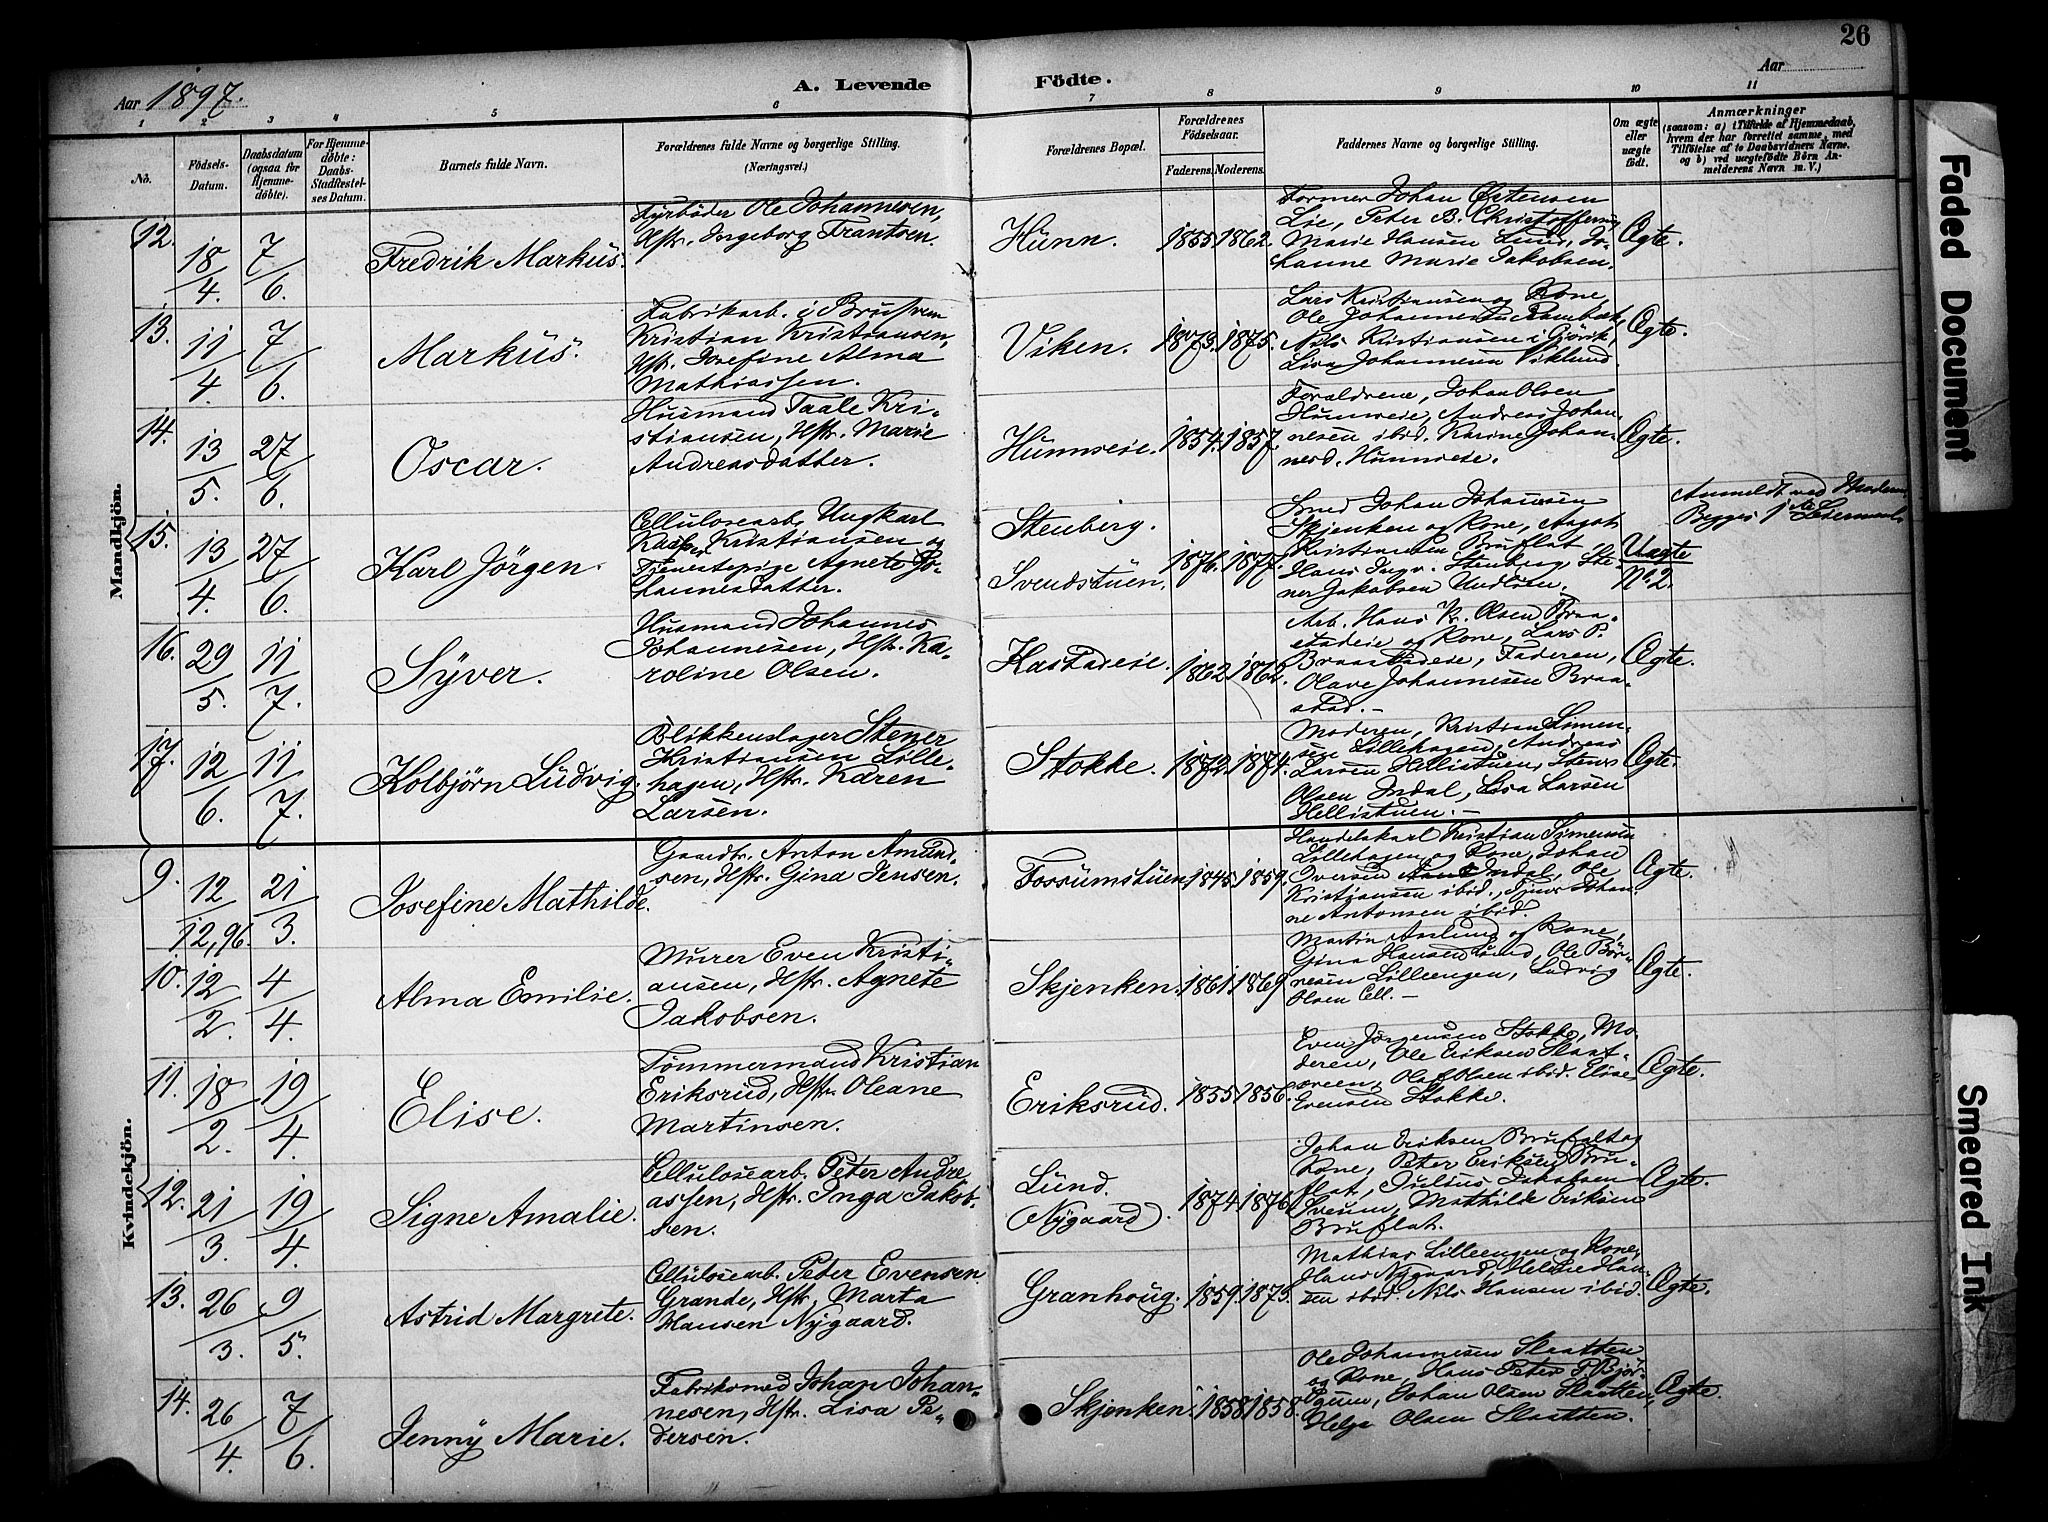 26
Aar 1897.
A. Levende Födte.
Aar
1 2 3 4 5 6 7 8 9 10 11
No.
Födsels-Datum.
Daabsdatum (ogsaa for Hjemme-döbte).
For Hjemme-döbte: Daabs-Stadfæstel-ses Datum.
Barnets fulde Navn.
Forældrenes fulde Navne og borgerlige Stilling.
(Næringsvei.)
Forældrenes Bopæl.
Forældrenes Födselsaar.
Faderens. Moderens.
Faddernes Navne og borgerlige Stilling.
Om ægte eller uægte födt.
Anmærkninger
(saasom: a) i Tilfælde af Hjemmedaab,
hvem der har forrettet samme, med
Tilföielse af to Daabsvidners Navne.
og b) ved uægtefödte Börn An-
melderens Navn m. V.)
Mandkjön.
12.
18/4.
7/6.
Fredrik Markus.
Fyrböder Ole Johannesen,
Hstr. Ingeborg Frantsen.
Hunn.
1855. 1862.
Former Johan Östensen
Lie, Peter B. Christoffersen,
Marie Hansen Lund, Jo-
hanne Marie Jakobsen.
Ægte.
13.
11/4
7/6.
Markus.
Fabrikarb. i Brusveen
Kristian Kristiansen,
Hstr. Josefine Alma
Mathiassen.
Viken.
1873. 1875.
Lars Kristiansen og Kone,
Ole Johannesen Rambæk,
Nils Kristiansen i Gjövik,
Lisa Johannesen Viklund.
Ægte.
14.
13/5.
27/6.
Oscar.
Husmand Taale Kri-
stiansen, Hstr. Marie
Andreasdatter.
Hunnseie.
1854. 1857.
Forældrene, Johan Olsen
Hunnseie, Andreas Johan-
nesen ibid. Karine Johan-
nesd. Hunnseie.
Ægte.
15.
13/4.
27/6.
Karl Jörgen.
Cellulosearb. Ungkarl
Kristiansen og
Tjenestepige Agnete Jo-
hannesdatter.
Stenberg.
Svendstuen.
1876. 1877.
Smed Johan Johansen
Skjenken og Kone, Aagot
Kristiansen Bruflat,
Hans Ingv. Stenberg, Ste-
ner Jakobsen
Uægte
No 2.
Anmeldt ved Moderen.
Begges 1ste Leiermaal.
16.
29/5
11/7.
Syver.
Husmand Johannes
Johannesen, Hstr. Ka-
roline Olsen.
Kastadeie.
1862. 1862.
Arb. Hans Kr. Olsen Braa-
stadeie og Kone, Lars P.
Braastadeie, Faderen,
Olave Johannesen Braa-
stad.-
Ægte.
17.
12/6.
11/7.
Kolbjörn Ludvig.
Blikkenslager Stener
Kristiansen Lille-
hagen, Hstr. Karen
Larsen.
Stokke.
1872. 1874.
Moderen, Kristian Simen-
sen Lillehagen, Andreas
Larsen Hellistuen, Stener
Olsen Indal, Lisa Larsen
Hellistuen.-
Ægte.
Kvindekjön.
9.
12/12,96.
21/3.
Josefine Mathilde.
Gaardbr. Anton Amund-
sen, Hstr. Gina Jensen.
Fossumstuen.
1845. 1859.
Handelskarl Kristian Simensen
Lillehagen og Kone, Johan
Iversen Indal, Ole
Kristiansen ibid., Johan-
ne Antonsen ibid.
Ægte.
10.
12/2.
4/4.
Alma Emilie.
Murer Even Kristi-
ansen, Hstr. Agnete
Jakobsen.
Skjenken.
1861. 1869.
Martin Aaslund og Kone,
Gina Hansen Lund, Ole Bör-
resen Lilleengen, Ludvig
Olsen Cell.-
Ægte.
11.
18/2.
19/4.
Elise.
Tömmermand Kristian
Eriksrud, Hstr. Oleane
Martinsen.
Eriksrud.
1855. 1856.
Even Jörgensen Stokke, Mo-
deren, Ole Eriksen Slaat-
sveen, Olaf Olsen ibid. Elise
Evensen Stokke.
Ægte.
12.
21/3.
19/4.
Signe Amalie.
Cellulosearb. Peter Andre-
assen, Hstr. Inga Jakob-
sen.
Lund.
(Nygaard).
1874. 1876.
Johan Eriksen Bruflat og
Kone, Peter Eriksen Bru-
flat, Julius Jakobsen
Sveum, Mathilde Eriksen
Bruflat.
Ægte.
13.
26/3.
9/5.
Astrid Margrete.
Cellulosearb. Peder Evensen
Grande, Hstr. Marta
Hansen Nygaard.
Granhoug.
1859. 1873.
Mathias Lilleengen og Kone,
Hans Nygaard, Helene Han-
sen ibid. Nils Hansen ibid.
Ægte.
14.
26/4.
7/6.
Jenny Marie.
Fabriksmed Johan Johan-
nesen, Hstr. Lisa Pe-
dersen.
Skjenken.
1858. 1858.
Ole Johannesen Slaatten
og Kone, Hans Peter P. Bjør-
Johan Olsen Slaatten,
Helga Olsen Slaatten.
Ægte.
Faded Document
Smeared Ink